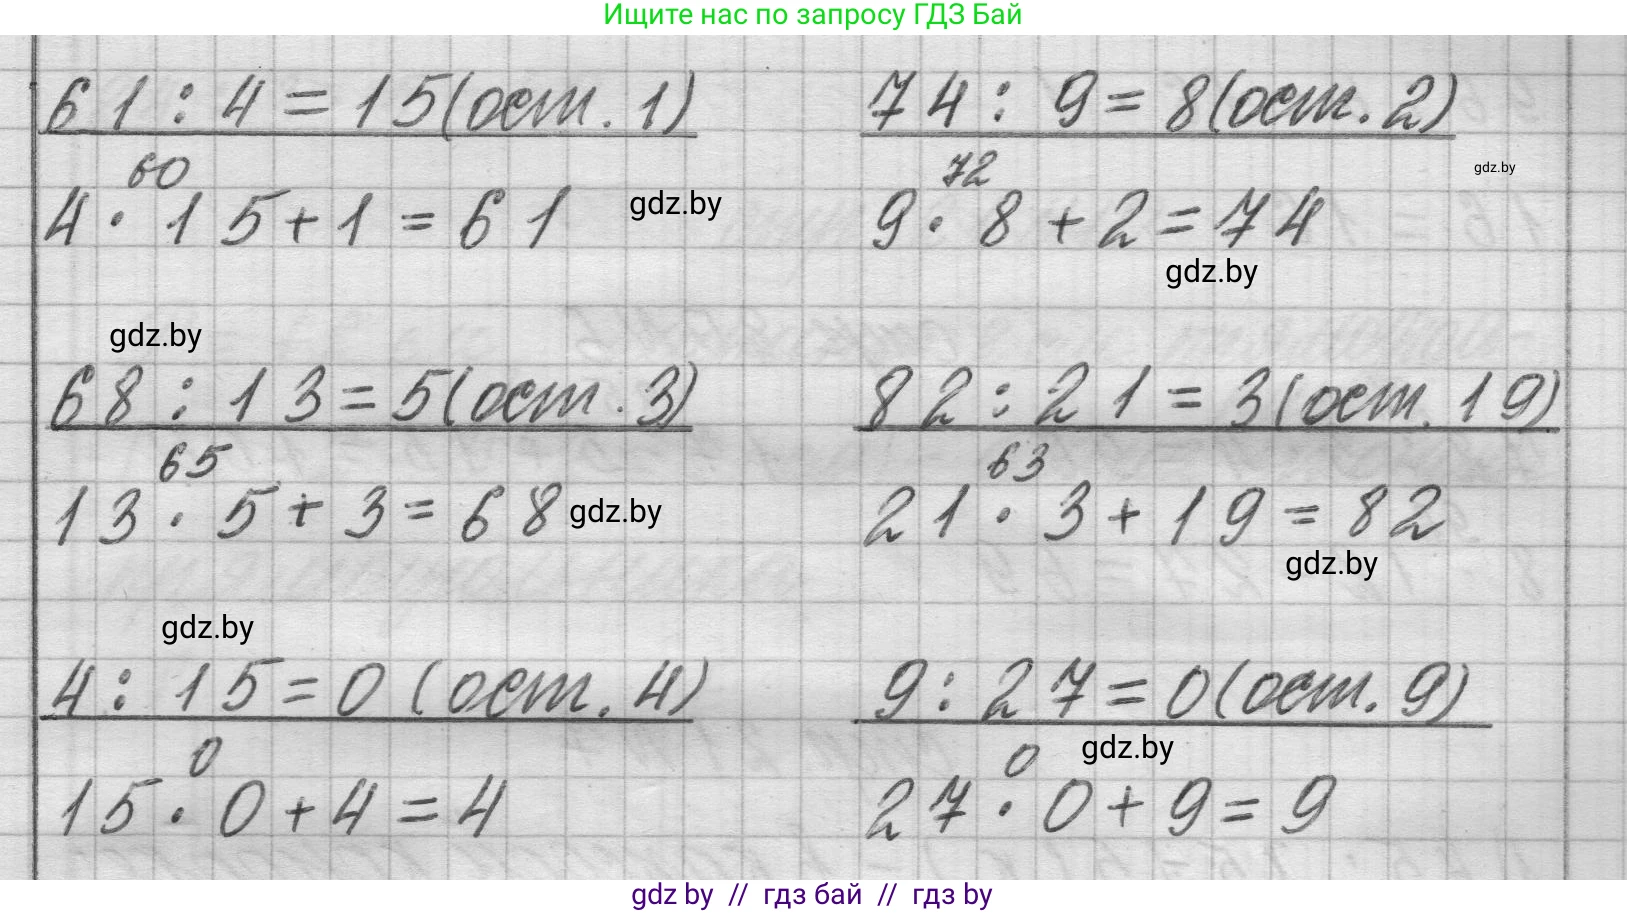 Ищите нас по запросу ГДЗ Бай
61 : 4 = 15(ост. 1)
74 : 9 = 8(ост. 2)
gdz.by
60
72
4 · 15 + 1 = 61
gdz.by
9 · 8 + 2 = 74
gdz.by
gdz.by
68 : 13 = 5(ост. 3)
82 : 21 = 3(ост. 19)
65
63
13 · 5 + 3 = 68
gdz.by
21 · 3 + 19 = 82
gdz.by
gdz.by
4 : 15 = 0 (ост. 4)
9 : 27 = 0(ост. 9)
gdz.by
0
0
15 · 0 + 4 = 4
27 · 0 + 9 = 9
gdz by // гдз бай // гдз by